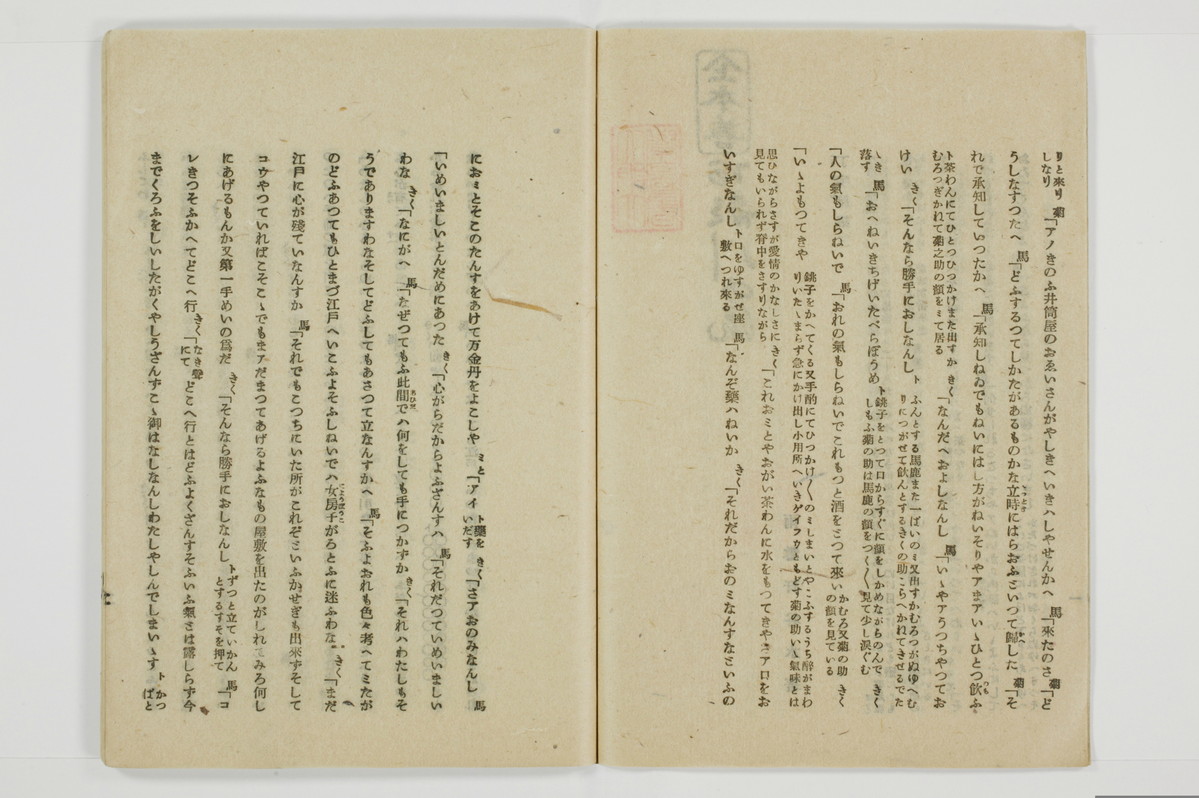 りと来り
しなり 菊「アノきのふ井筒屋のおゑいさんがやしきへいきハしやせんかへ 馬「來たのさ 菊「ど
うしなすつたへ 馬「どふするつてしかたがあるものかな立時にはらおふございつて歸した 菊「そ
れで承知していつたかへ 馬「承知しねゐでもねいにはし方がねいそりやアまアいゝひとつ飲ふ
ト茶わんにてひとつひつかけまた出すか
むろつぎかねて菊之助の顔をミて居る きく「なんだへおよしなんし 馬「いゝやアうつちやつてお
けい きく「そんなら勝手におしなんし ト ふんとする馬鹿また一ぱいのミ又出すかむろつがぬゆへむ
りにつがせて飲んとするきくの助こらへかねてきせるでた
ゝき
落す 馬「おへねいきちげいたべらぼうめ ト銚子をとつて口からすぐに顔をしかめながらのんで
しもふ菊の助は馬鹿の顔をつく〱見て少し涙ぐむ きく
「人の氣もしらねいで 馬「おれの氣もしらねいでこれもつと酒をとつて來い かむろ又菊の助
の顔を見ている きく
「いゝよもつてきや 銚子をかへてくる又手酌にてひつかけ〱のミしまいとやこふするうち醉がまわ
りいたゝまらず急にかけ出し小用所へいきゲイフウともどす菊の助いゝ氣味とは
思ひながらさすが愛情のかなしさに
見てもいられず脊中をさすりながら きく「これおミとやおがい茶わんに水をもつてきやさアロをお
いすぎなんし トロをゆすがせ座
敷へつれ來る 馬「なんぞ藥ハねいか きく「それだからおのミなんすなといふの
におミとそこのたんすをあけて万金丹をよこしや ミと「アイ ト藥を
いだす きく「さアおのみなんし 馬
「いめいましいとんだめにあつた きく「心がらだからよふざんすハ 馬「それだつていめいましい
わな きく「なにがへ 馬「なぜつてもふ此間でハ何をしても手につかずか きく「それハわたしもそ
うでありますわなそしてどふしてもあさつて立なんすかへ 馬「そふよおれも色々考へてミたが
のどふあつてもひとまづ江戸へいこふよそふしねいでハ女房子がろとふに迷ふわな きく「まだ
江戸に心が殘ていなんすか 馬「それでもこつちにいた所がこれぞといふかせぎも出來ずそして
コウやつていればこそこゝでもまアだまつてあげるよふなもの屋敷を出たのがしれてみろ何し
にあげるもんか又第一手めいの爲だ きく「そんなら勝手におしなんし トずつと立ていかん
とするすそを押て 馬「コ
レきつそふかへてどこへ行 きく「なき聲
にて どこへ行とはどふよくざんすそふいふ氣とは露しらず今
までくろふをしいしたがくやしうざんすこゝ御はなしなんしわたしやしんでしまいゝす トかつ
ぱと